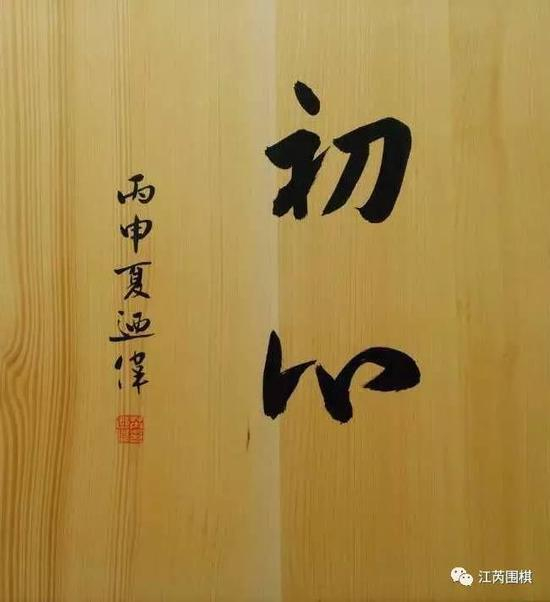 初心
丙申夏迺偉
江芮围棋